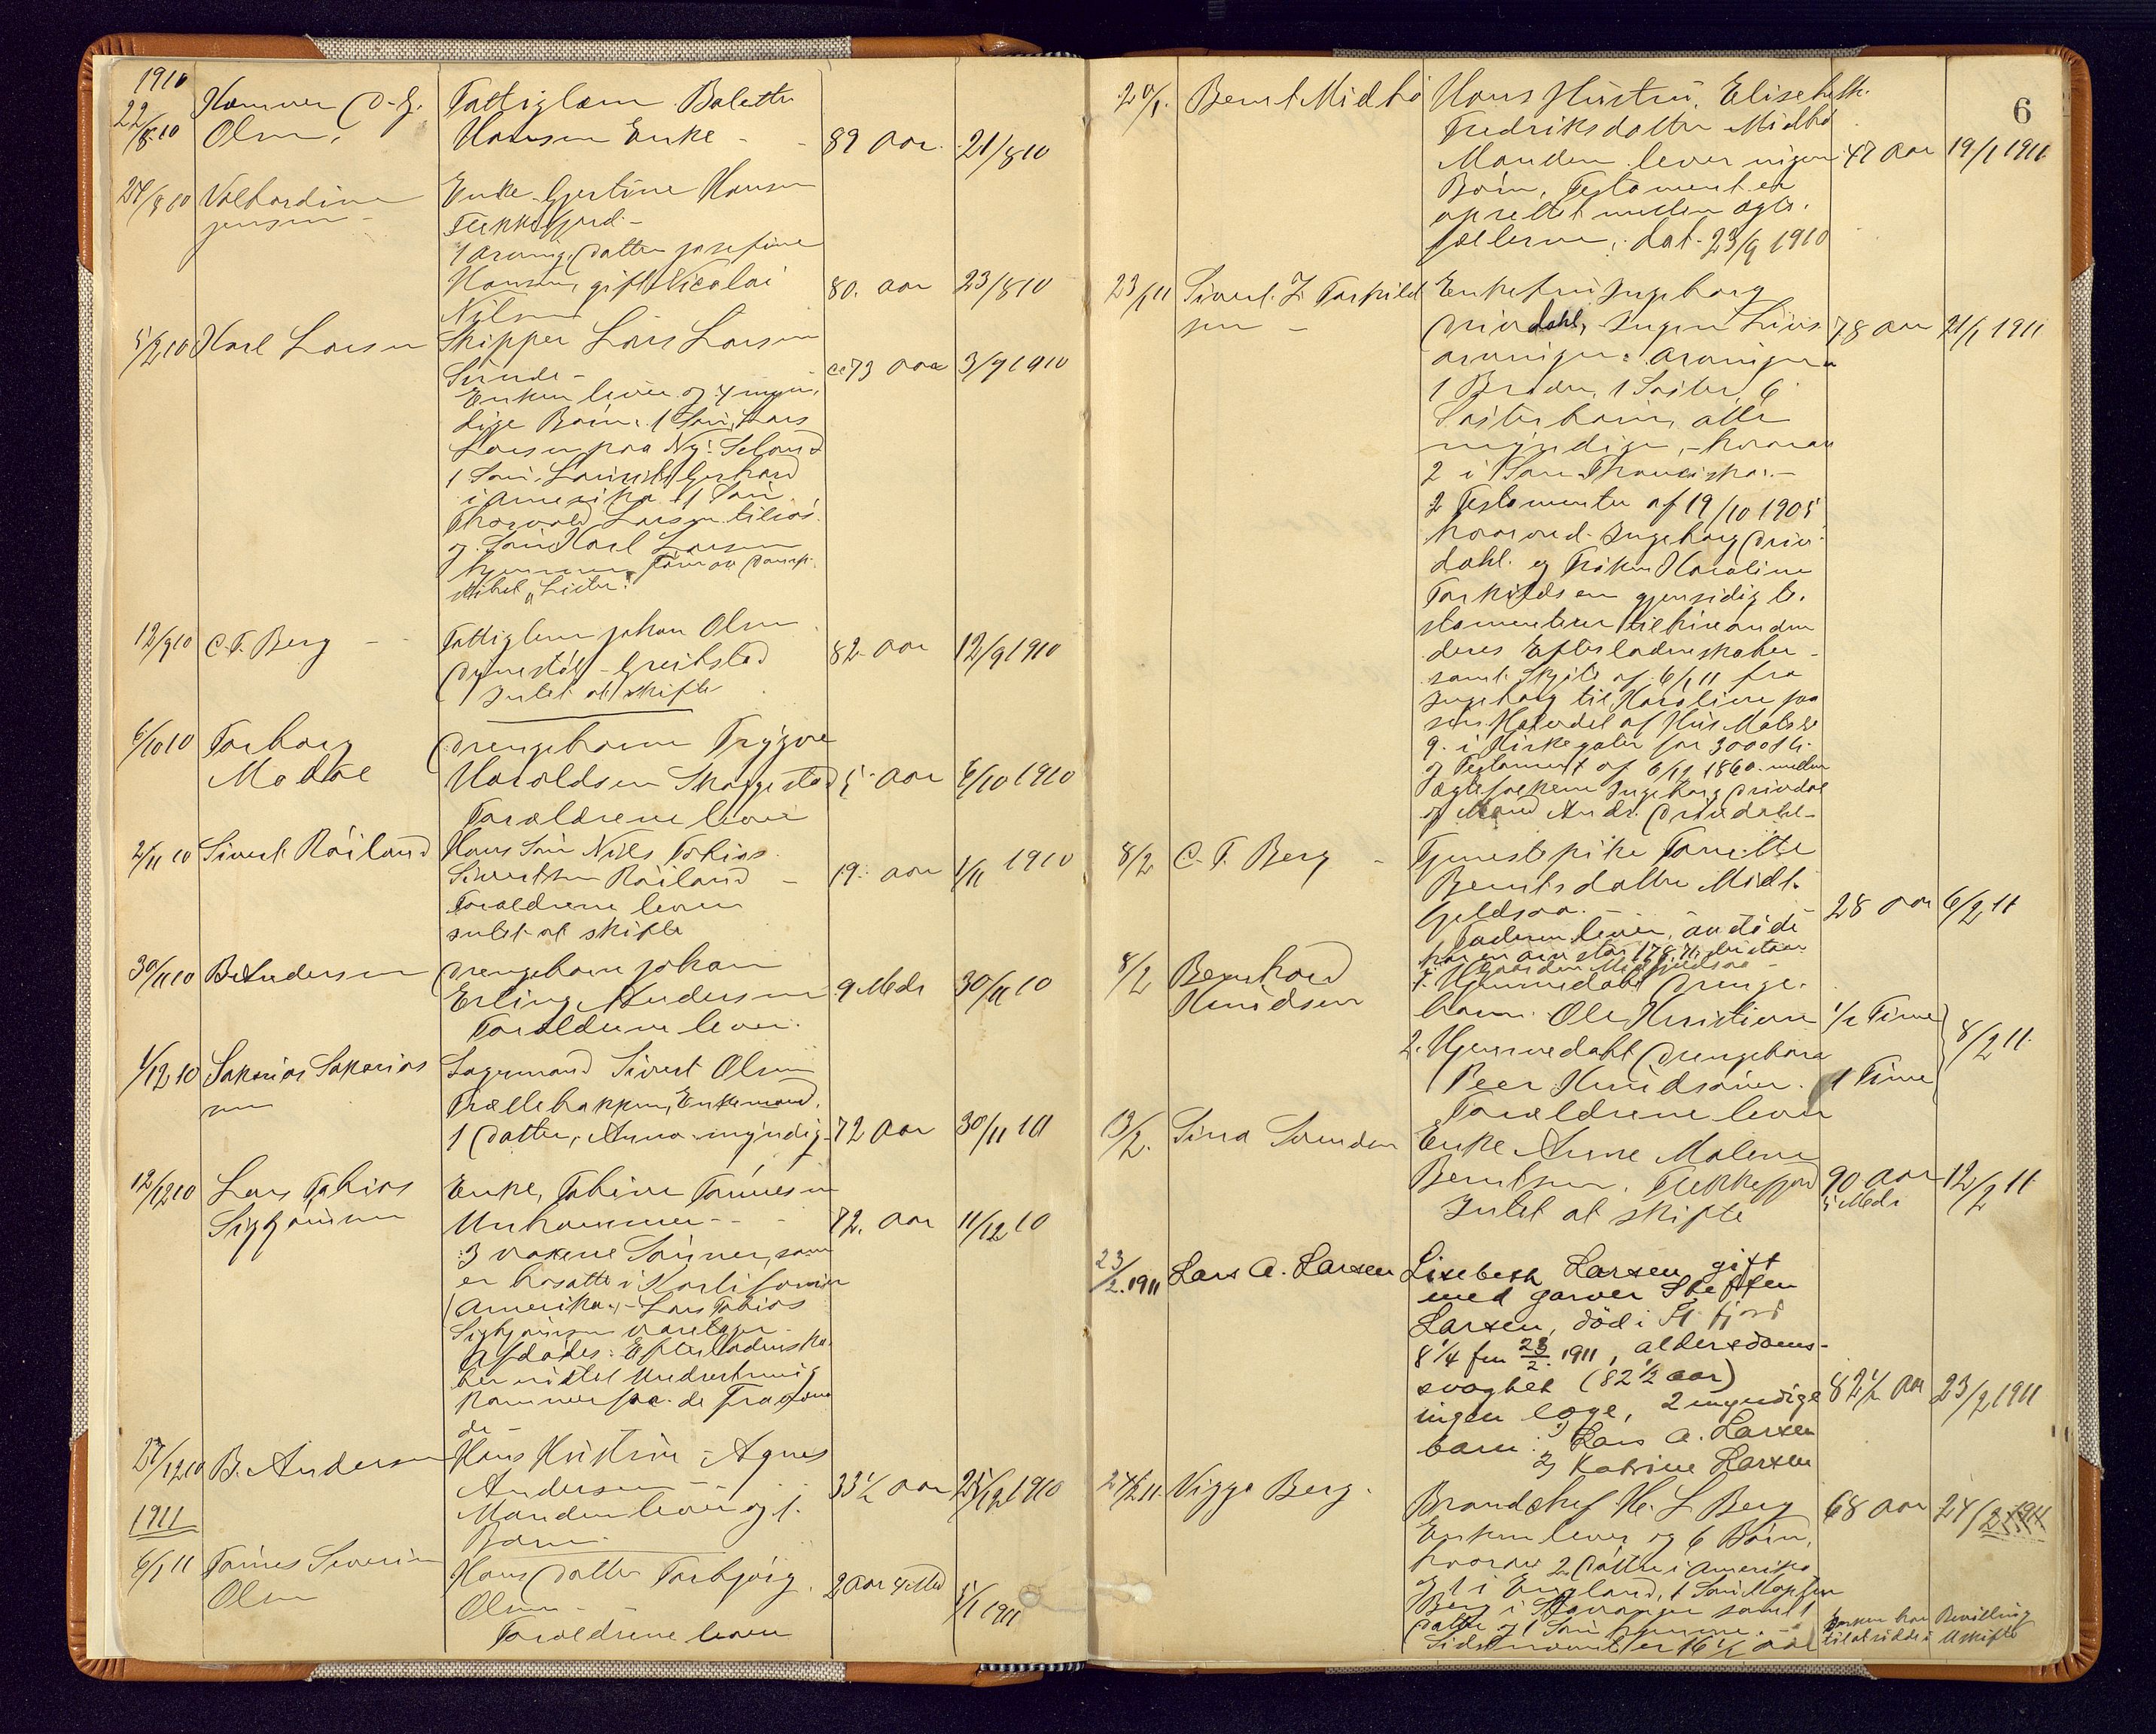 1910
22/8 10 Kæmner O. G. Fattiglem Bolette
Olsen, Hansen Enke - 89 Aar. 21/8 10
24/8 10 Valbordine Enke Gjertine Hansen
Jensen - Flekkefjord -
1 Arving, Datter Josefine
Hansen, gift Nicolai 80. Aar 23/8 10
Nilsen
5/9 10 Karl Larsen Skipper Lars Larsen
Sunde - 73 Aar 3/9 1910
Enken lever og 4 myn-
dige Børn. 1 Søn, Lars
Larsen paa Ny Seland
1 Søn, Gerhard
i Amerika 1 Søn
Thorvald Larsen tilsøs
og Søn Karl Larsen
hjemme
skibet "Lister".
12/9 10 C. F. Berg - Fattiglem Johan Olsen
Gribstad 82 Aar 12/9 1910
Intet at skifte
6/10 10 Torborg Drengebarn Trygve
Modtæl Haraldsen Skaggestad 5 Aar 6/10 1910
Forældrene lever
2/11 10 Sivert Røiland Hans Søn Nils Tobias
Sivertsen Røiland - 19. Aar 1/11 1910
Forældrene lever
Intet at skifte
30/11 10 B. Andersen Drengebarn Johan
Erling Andersen 9 Mdr 30/11 10
Forældrene lever.
1/12 10 Sakarias Sakarias Lagermand Sivert Olsen
sen Trællebakken, Enkemand,
1 Datter, Anna myndig 72 Aar 30/11 10
12/12 10 Lars Tobias Enke, Tobine Tønnesen
Sigbjørnsen 72. Aar 11/12 10
3 voksne Sønner, som
er bosatte i Kalifornien
Amerika, - Lars Tobias
Sigbjørnsen varetager
Afdødes Efterladenska-
ber indtil Underretning
kommer fra de Fraværen
de -
27/12 10 B. Andersen Hans Hustru - Agnes
Andersen - 33½ Aar 25/12 1910
Manden lever og 1
Barn
1911
6/1 11 Tønnes Severin Hans Datter Torbjørg
Olsen Olsen - 2 Aar 4 Md 5/1 1911
Forældrene lever
6
20/1. Bernt Midbø Hans Hustru, Elisebeth
Fredriksdatter Midbø
Manden lever ingen 47 Aar 19/1 1911
Børn, Testament er
oprettet mellem Ægte-
fællerne, dat. 23/9 1910
23/1 11 Sivert Z Torkild Enkefru Ingeborg
sen - Drivdahl, Ingen Livs 78 Aar 21/1 1911
arvinger: Arvinger
1 Broder, 1 Søster, 6
Søsterbørn, alle
myndige, - hvoraf
2 i San Franciska. -
2 Testamenter af 19/10 1905
hvorved Ingeborg Driv-
dahl og Frøken Karoline
Torkildsen gjensidig te-
stamenterer til hinanden
deres Efterladenskaber -
samt Skjøte af 6/1 11 fra
Ingeborg til Karoline paa
sin Halvdel af Hus Mats No
9. i Kirkegaten for 3000 Kr
og Testament af 6/12 1860 mellem
Ægtefolkene Ingeborg Drivdal
og Mand Andr. Drivdahl -
8/2 C. F. Berg - Tjenestepike Tonette
Berntsdatter Midt-
Gjeldsaa. - 28 Aar 6/2 11
Faderen lever, Afdøde
har en
i Gaarden Midgjeldsaa
8/2 Bernhard 1. Hjemmedøbt Drenge-
Knudsen barn Ole Kristian ½ Time 8/2 11
2. Hjemmedøbt Drengebarn
Peer Knudsøner 1 Time
Forældrene lever
13/2. Sina Svendsen Enke Anne Malene
Berntsen. Flekkefjord 90 Aar 12/2 11
Intet at skifte 5 Mdr
23/2. 1911 Lars A. Larsen Lisebeth Larsen, gift
med garver Steffen
Larsen, död i Fl. fjord
8¼ fm 23/2. 1911, alderdoms-
svaghet (82½ aar) 82½ Aar 23/2 1911
ingen læge, 2 myndige
barn: 1) Lars A. Larsen
2) Katrine Larsen
24/2 11 Viggo Berg. Brandchef H. L Berg 68 Aar 24/2 1911
Enken lever og 6 Børn,
hvorav 2 Døttre i Amerika
og 1 i England, 1 Søn
Berg i Stavanger samt 1
Datter og 1 Søn hjemme. -
Sidstnævnte er 16½ Aar
Enken har Bevilling
til at sidde i Uskifte